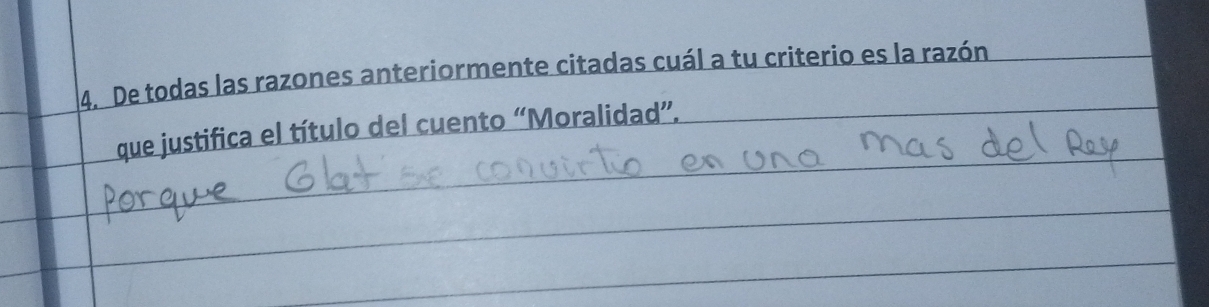 4. De todas las razones anteriormente citadas cuál a tu criterio es la razón
que justifica el título del cuento “Moralidad”.
Porque Glat se convirtio en una mas del Rey